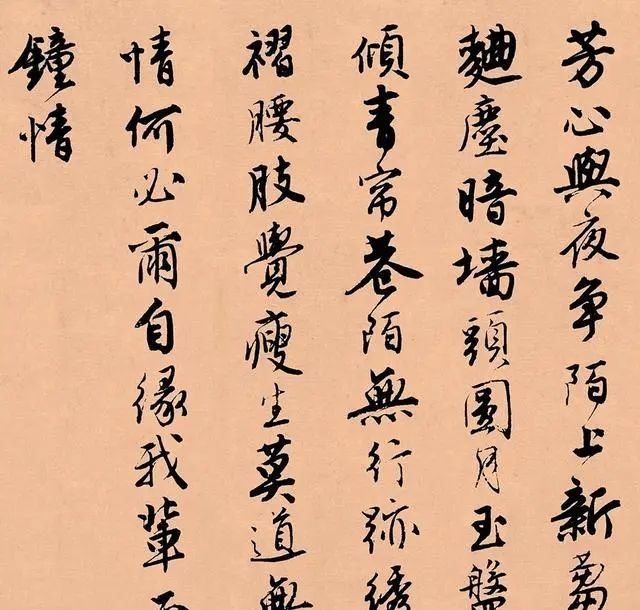 芳心與夜争陌上新
麯塵暗墻頭圓月玉盤
傾青帘巷陌無行跡
褶腰肢覺瘦生莫道無
情何必爾自緣我輩
鐘情